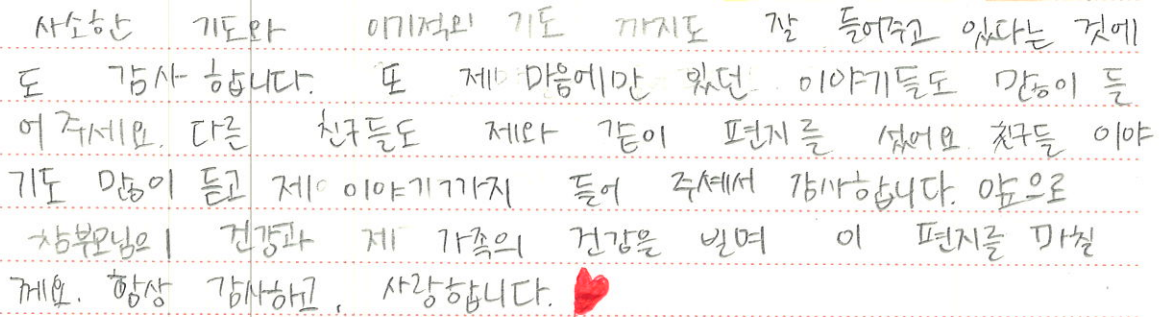 사소한 기도와 이기적인 기도 까지도 잘 들어주고 있다는 것에
도 감사 합니다. 또 제 마음에만 있던 이야기들도 많이 들
어 주세요. 다른 친구들도 제와 같이 편지를 썼어요. 친구들 이야
기도 많이 듣고 제 이야기 까지 들어 주셔서 감사합니다. 앞으로
참부모님의 건강과 제 가족의 건강을 빌며 이 편지를 마칠
께요. 항상 감사하고, 사랑합니다.